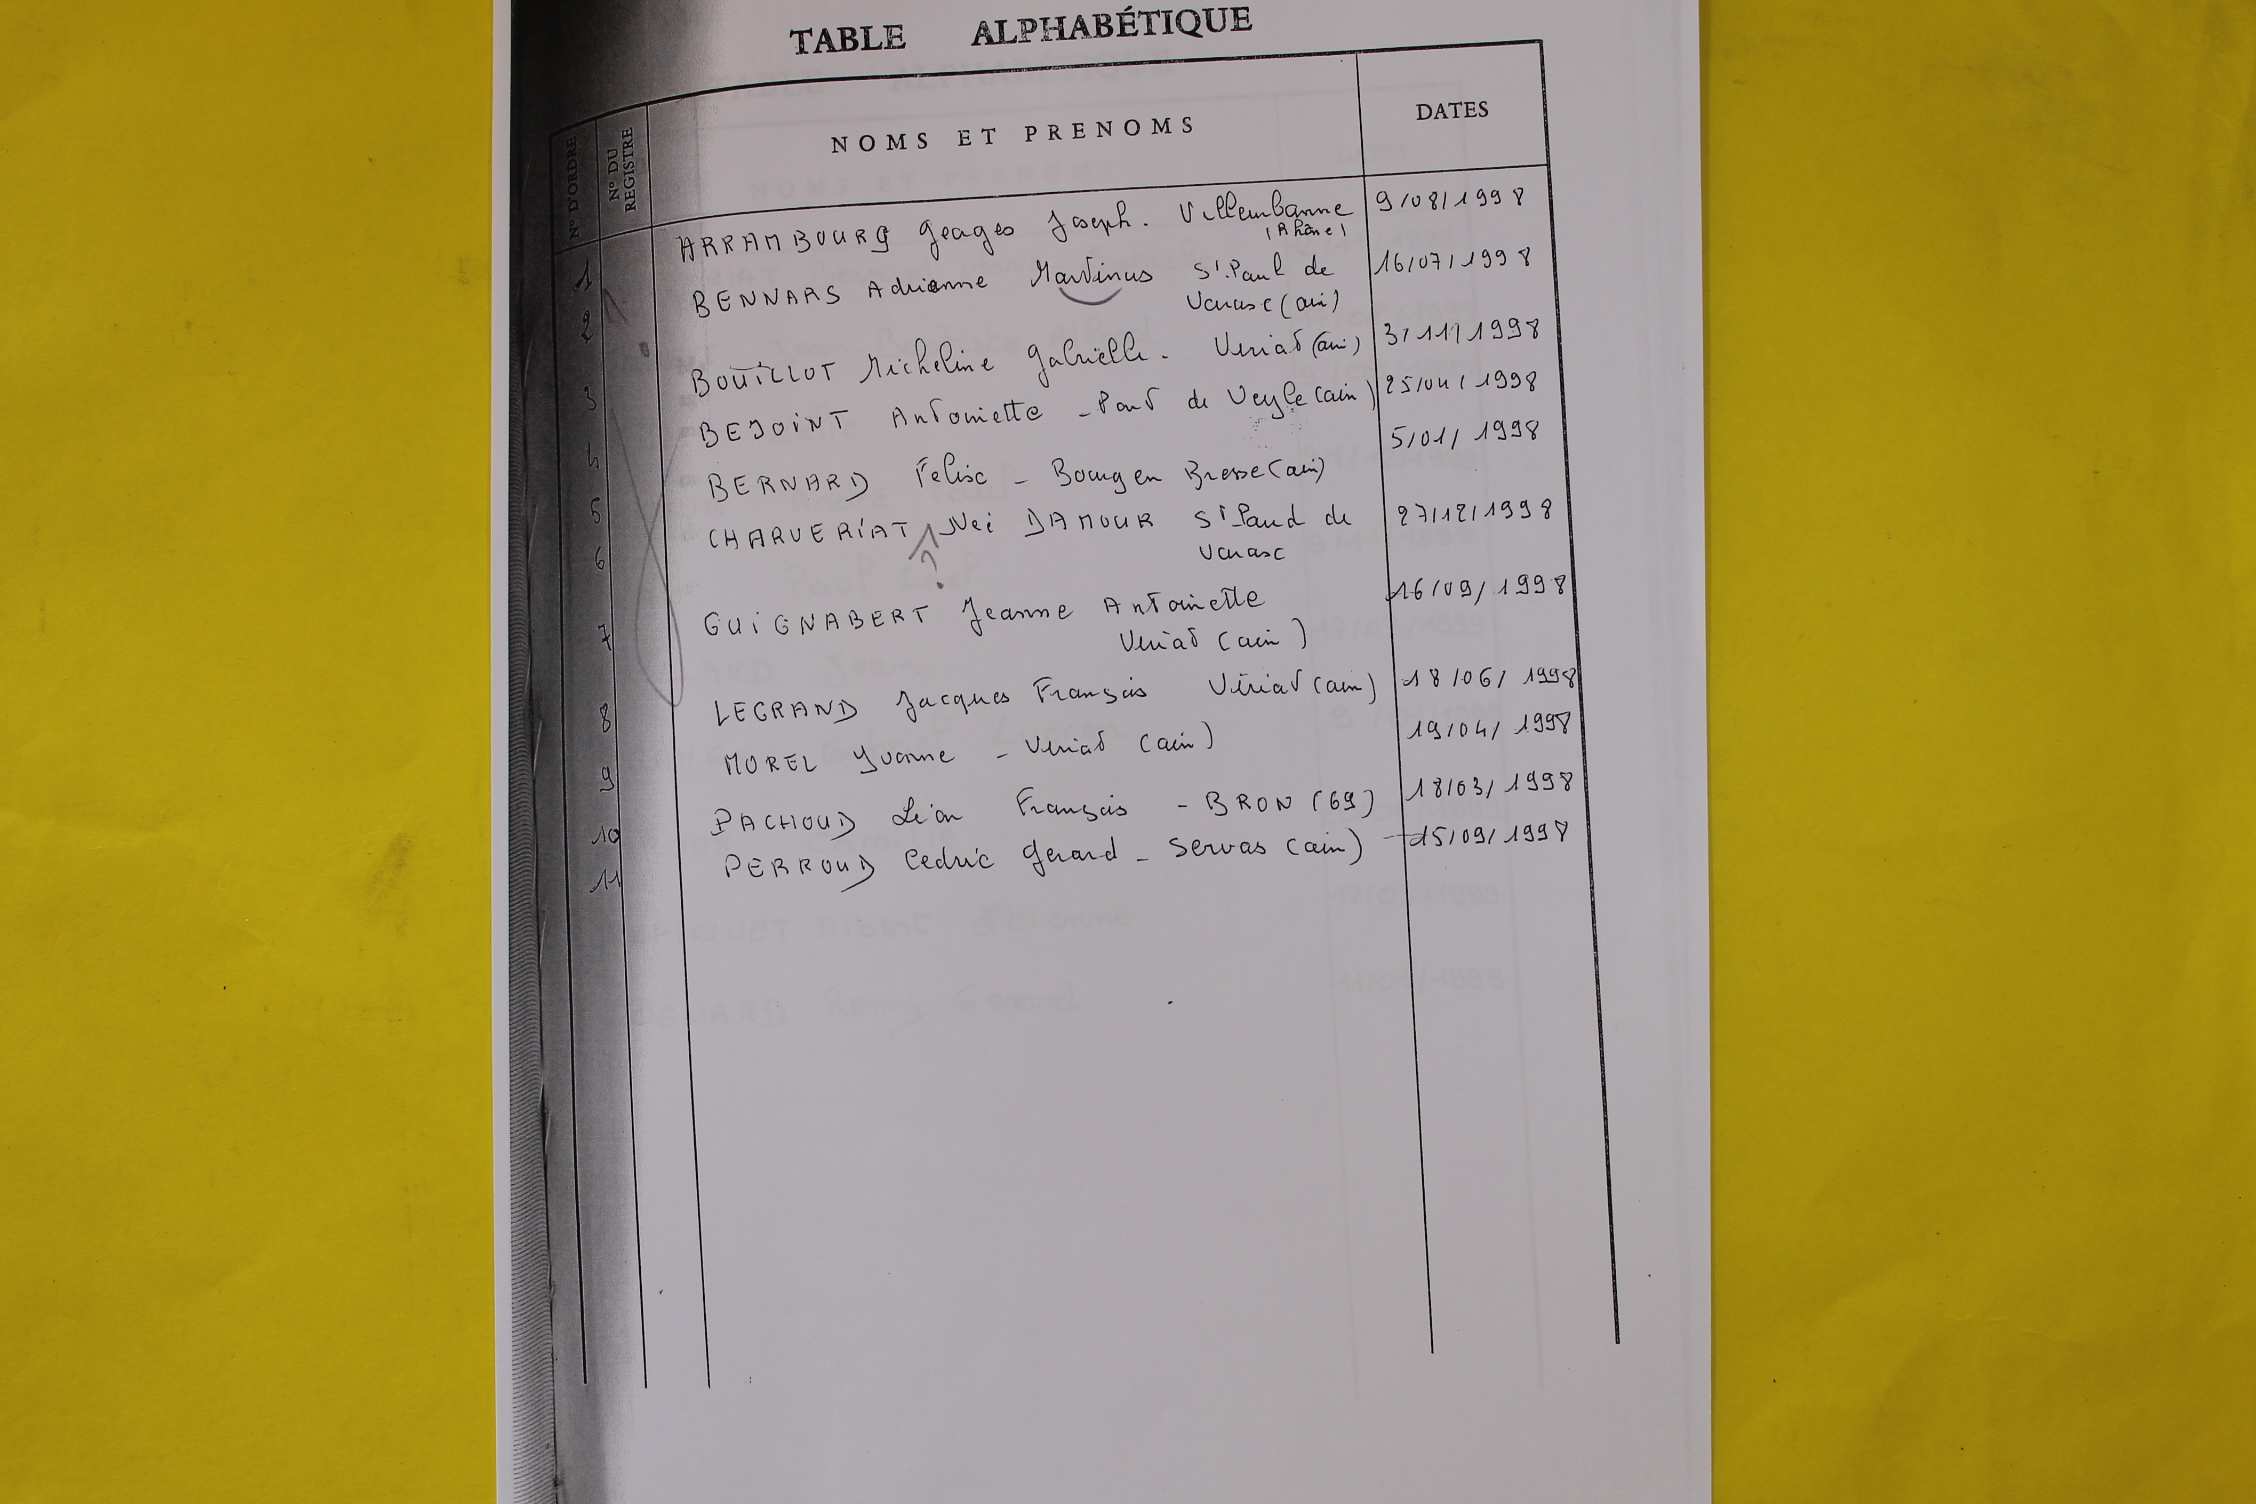 TABLE ALPHABÉTIQUE
N° D'ORDRE
N° DU REGISTRE
NOMS ET PRENOMS
DATES
1 ARRAMBOURG Georges Joseph. Villeurbanne 9/08/1998
(Rhône)
2 BENNARS Adrienne Martinus St. Paul de 16/07/1998
Varasc (ain)
3 BOUILLOT Micheline Gabrielle. Viriat (ain) 3/11/1998
4 BEJOINT Antoinette - Pont de Veyle (ain) 25/04/1998
5 BERNARD Felix - Bourg en Bresse (ain) 5/01/1998
6 CHARVERIAT Née DAMOUR St Paul de 27/12/1998
?
Varasc
7 GUIGNABERT Jeanne Antoinette 16/09/1998
Viriat (ain)
8 LEGRAND Jacques François Viriat (ain) 18/06/1998
9 MOREL Yvonne - Viriat (ain) 19/04/1998
10 PACHOUD Léon François - BRON (69) 18/03/1998
11 PERROUD Cedric Gerard - Servas (ain) 15/09/1998